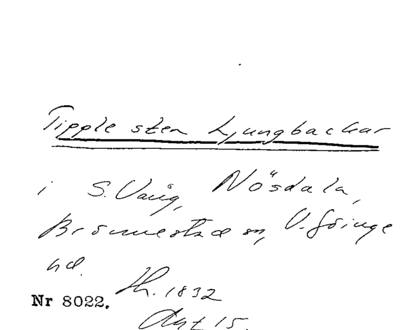 Tipple sten Ljungbackar
i S. Vång, Nösdala,
Brönnestad sn, V. Göinge
hd.
Nr 8022. Th. 1892
Avt 15.